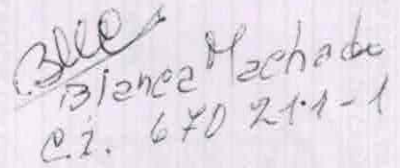 Blanca Machado
C.I. 670 211-1